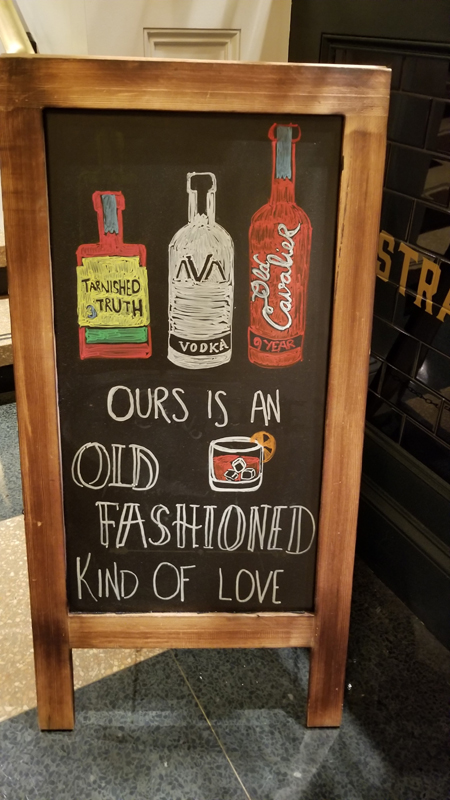 TARNISHED
TRUTH
VODKA
Old
Cavalier
9 YEAR
OURS IS AN
OLD
FASHIONED
KIND OF LOVE
STRA